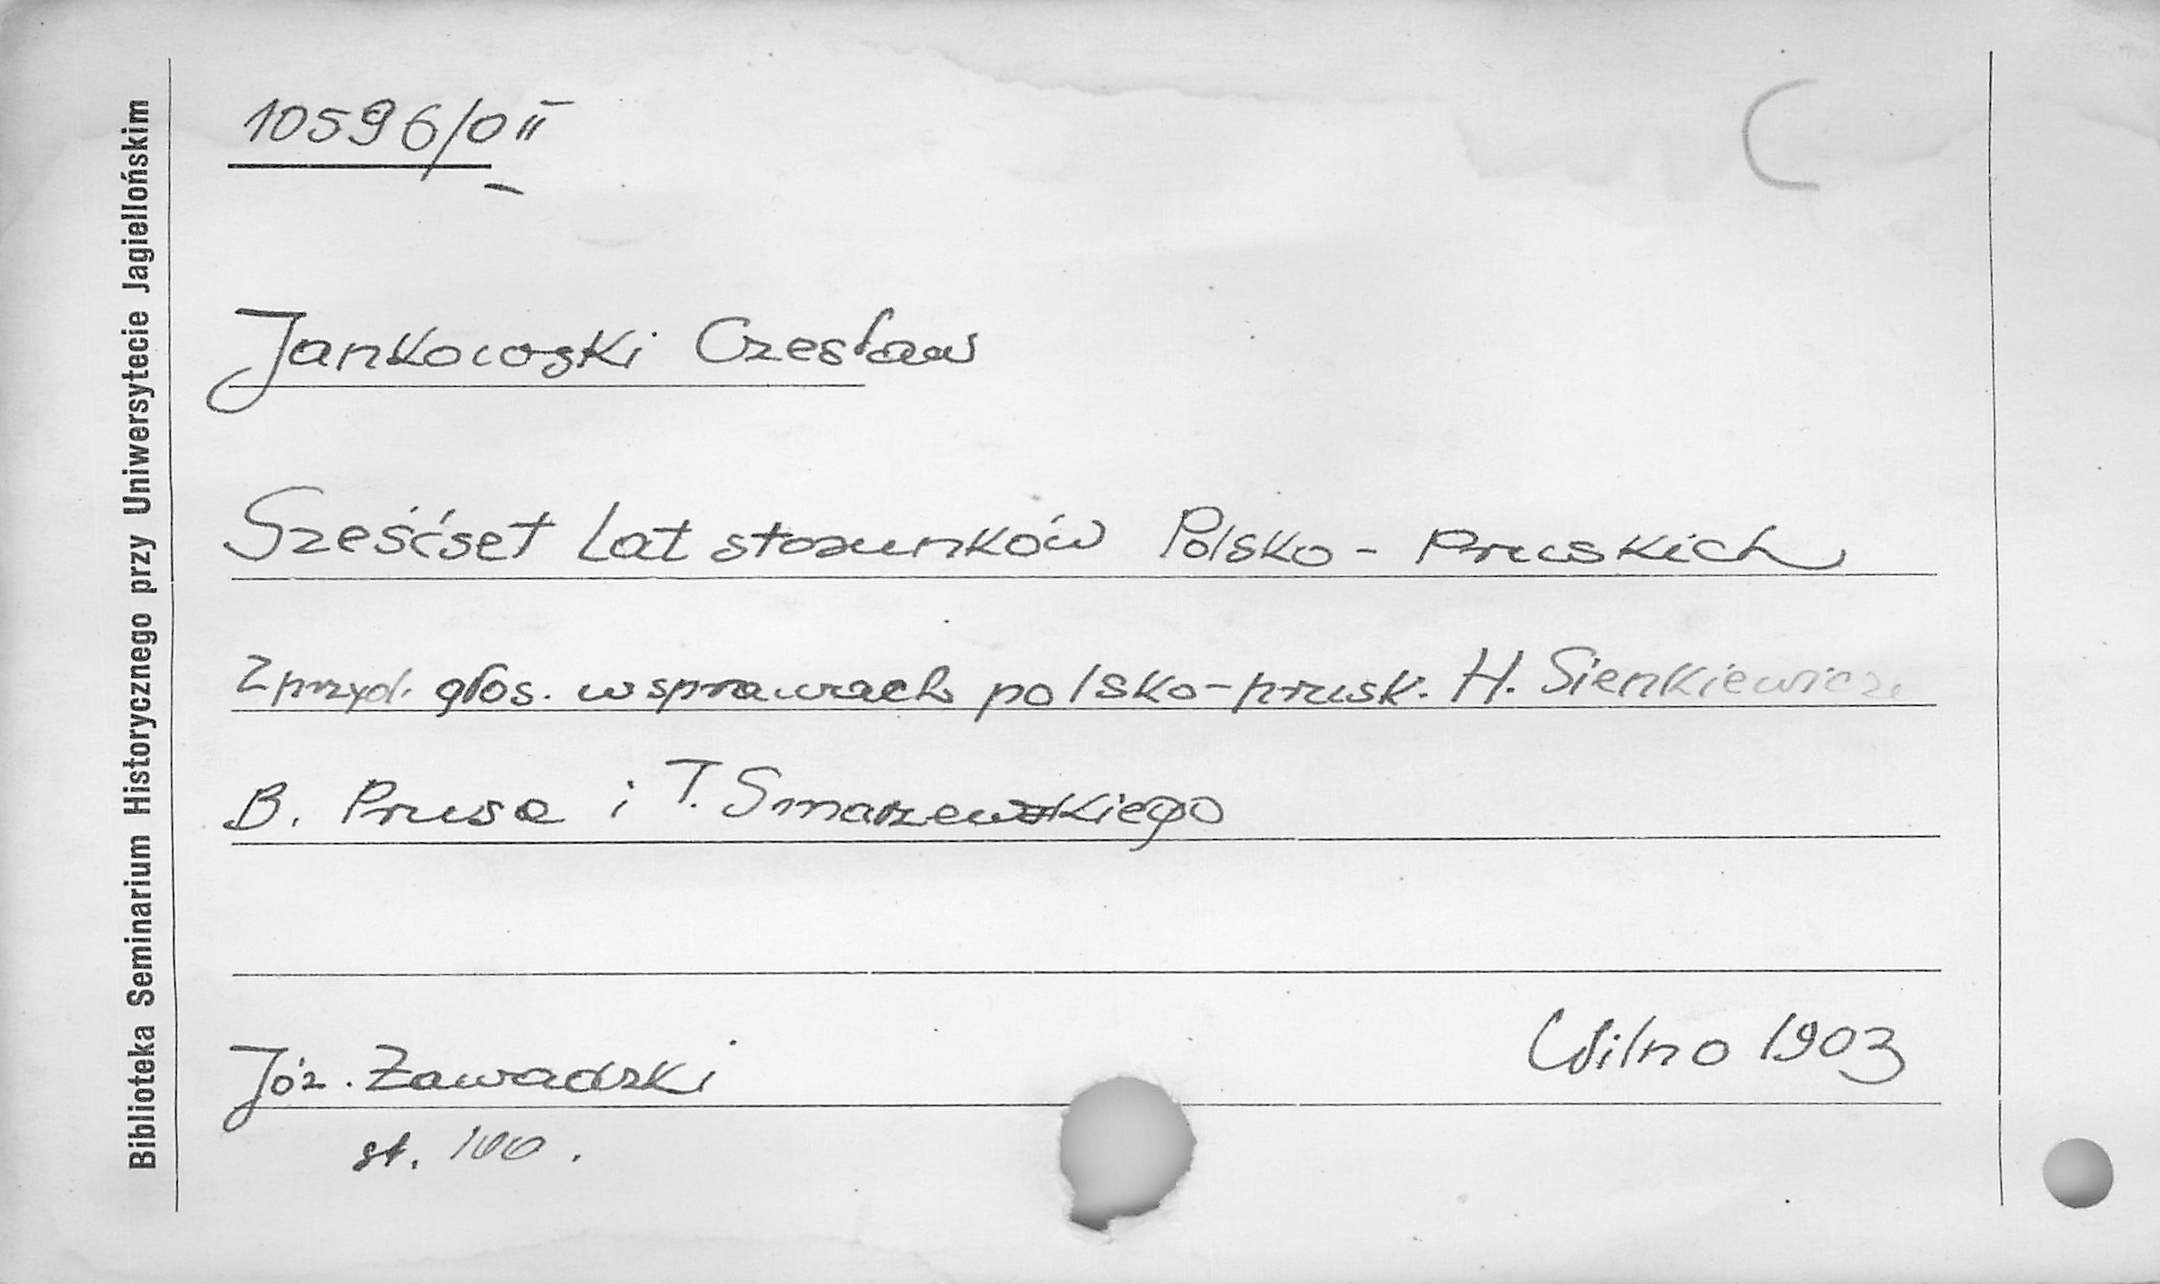 Biblioteka Seminarium Historycznego przy Uniwersytecie Jagiellońskim
10596/0 II
C
Jankowski Czesław
Sześćset lat stosunków Polsko - Pruskich
Z przyd. głos. w sprawach polsko-prusk. H. Sienkiewicz.
B. Prusa i T. Smarzewskiego
Wilno 1903
Józ. Zawadzki
st. 100.